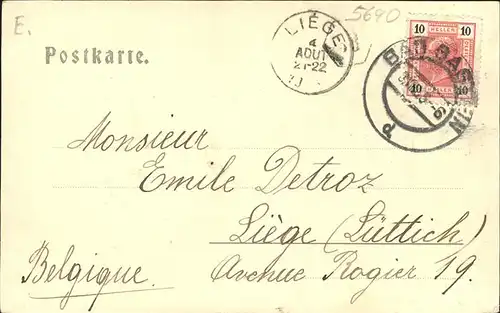 E.
5690
Postkarte.
LIÉGE
4
AOUT
21-22
10 10
HELLER
10 HELLER 10
BAD GAS
Monsieur
Emile Detroz
Liège (Lüttich)
Belgique.
Avenue Rogier 19.